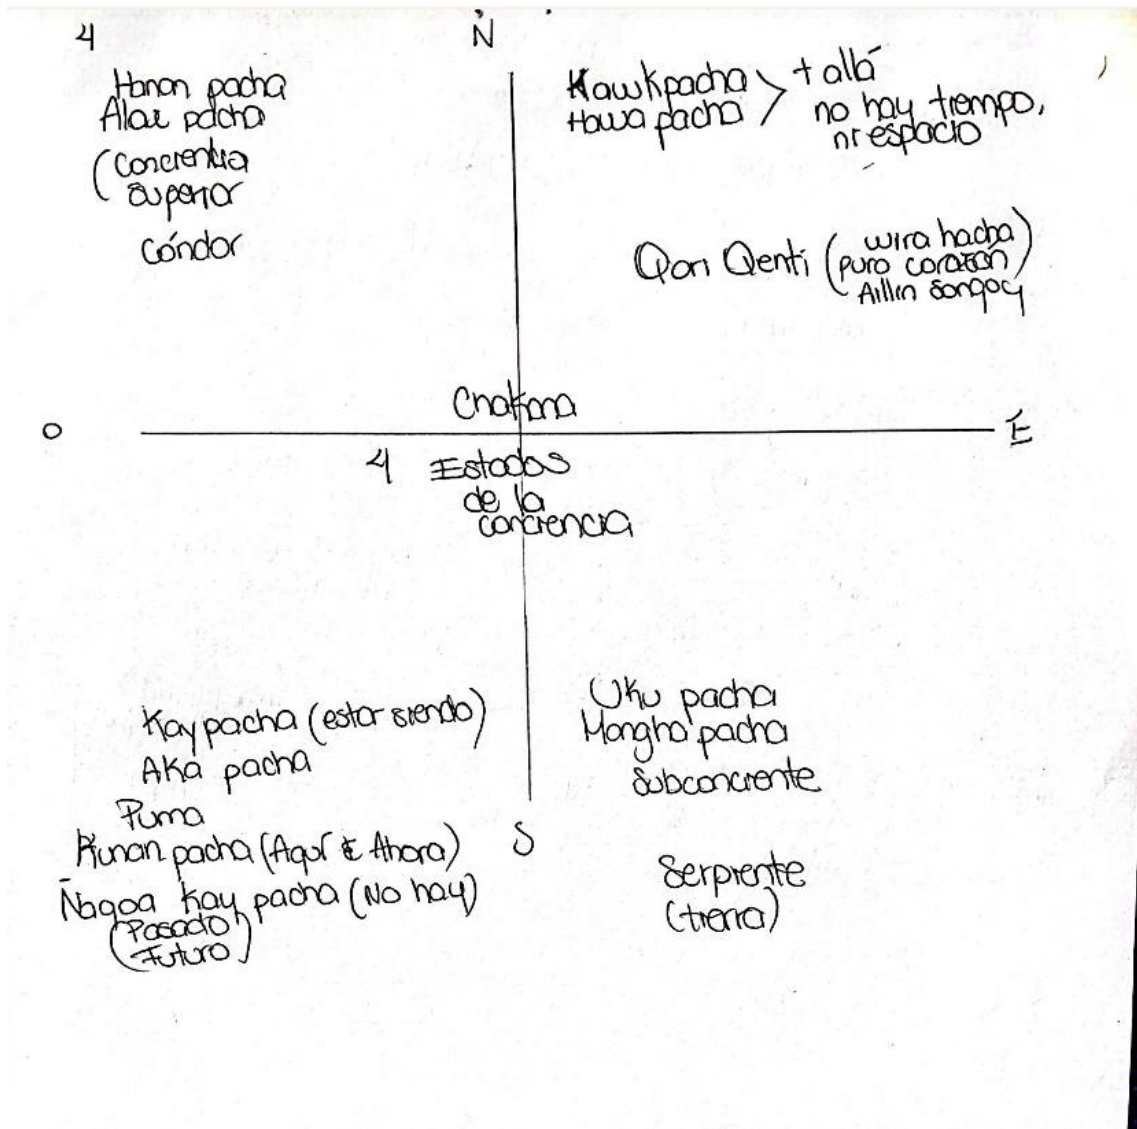 4
N
Hanan pacha
Alax pacha
(Conciencia
Superior
Cóndor
Kawkpacha > + allá
Hawa pacha no hay tiempo,
ni espacio
Qori Qenti (wira hacha
puro corazón)
Aillin Sonqoy
Chakana
O
E
4 Estados
de la
conciencia
Kay pacha (estar siendo)
Aka pacha
Puma
Kunan pacha (Aquí & Ahora)
Ñaqoa Kay pacha (No hay)
(Pasado
Futuro)
S
Uku pacha
Mangha pacha
Subconciente
Serpiente
(tierra)